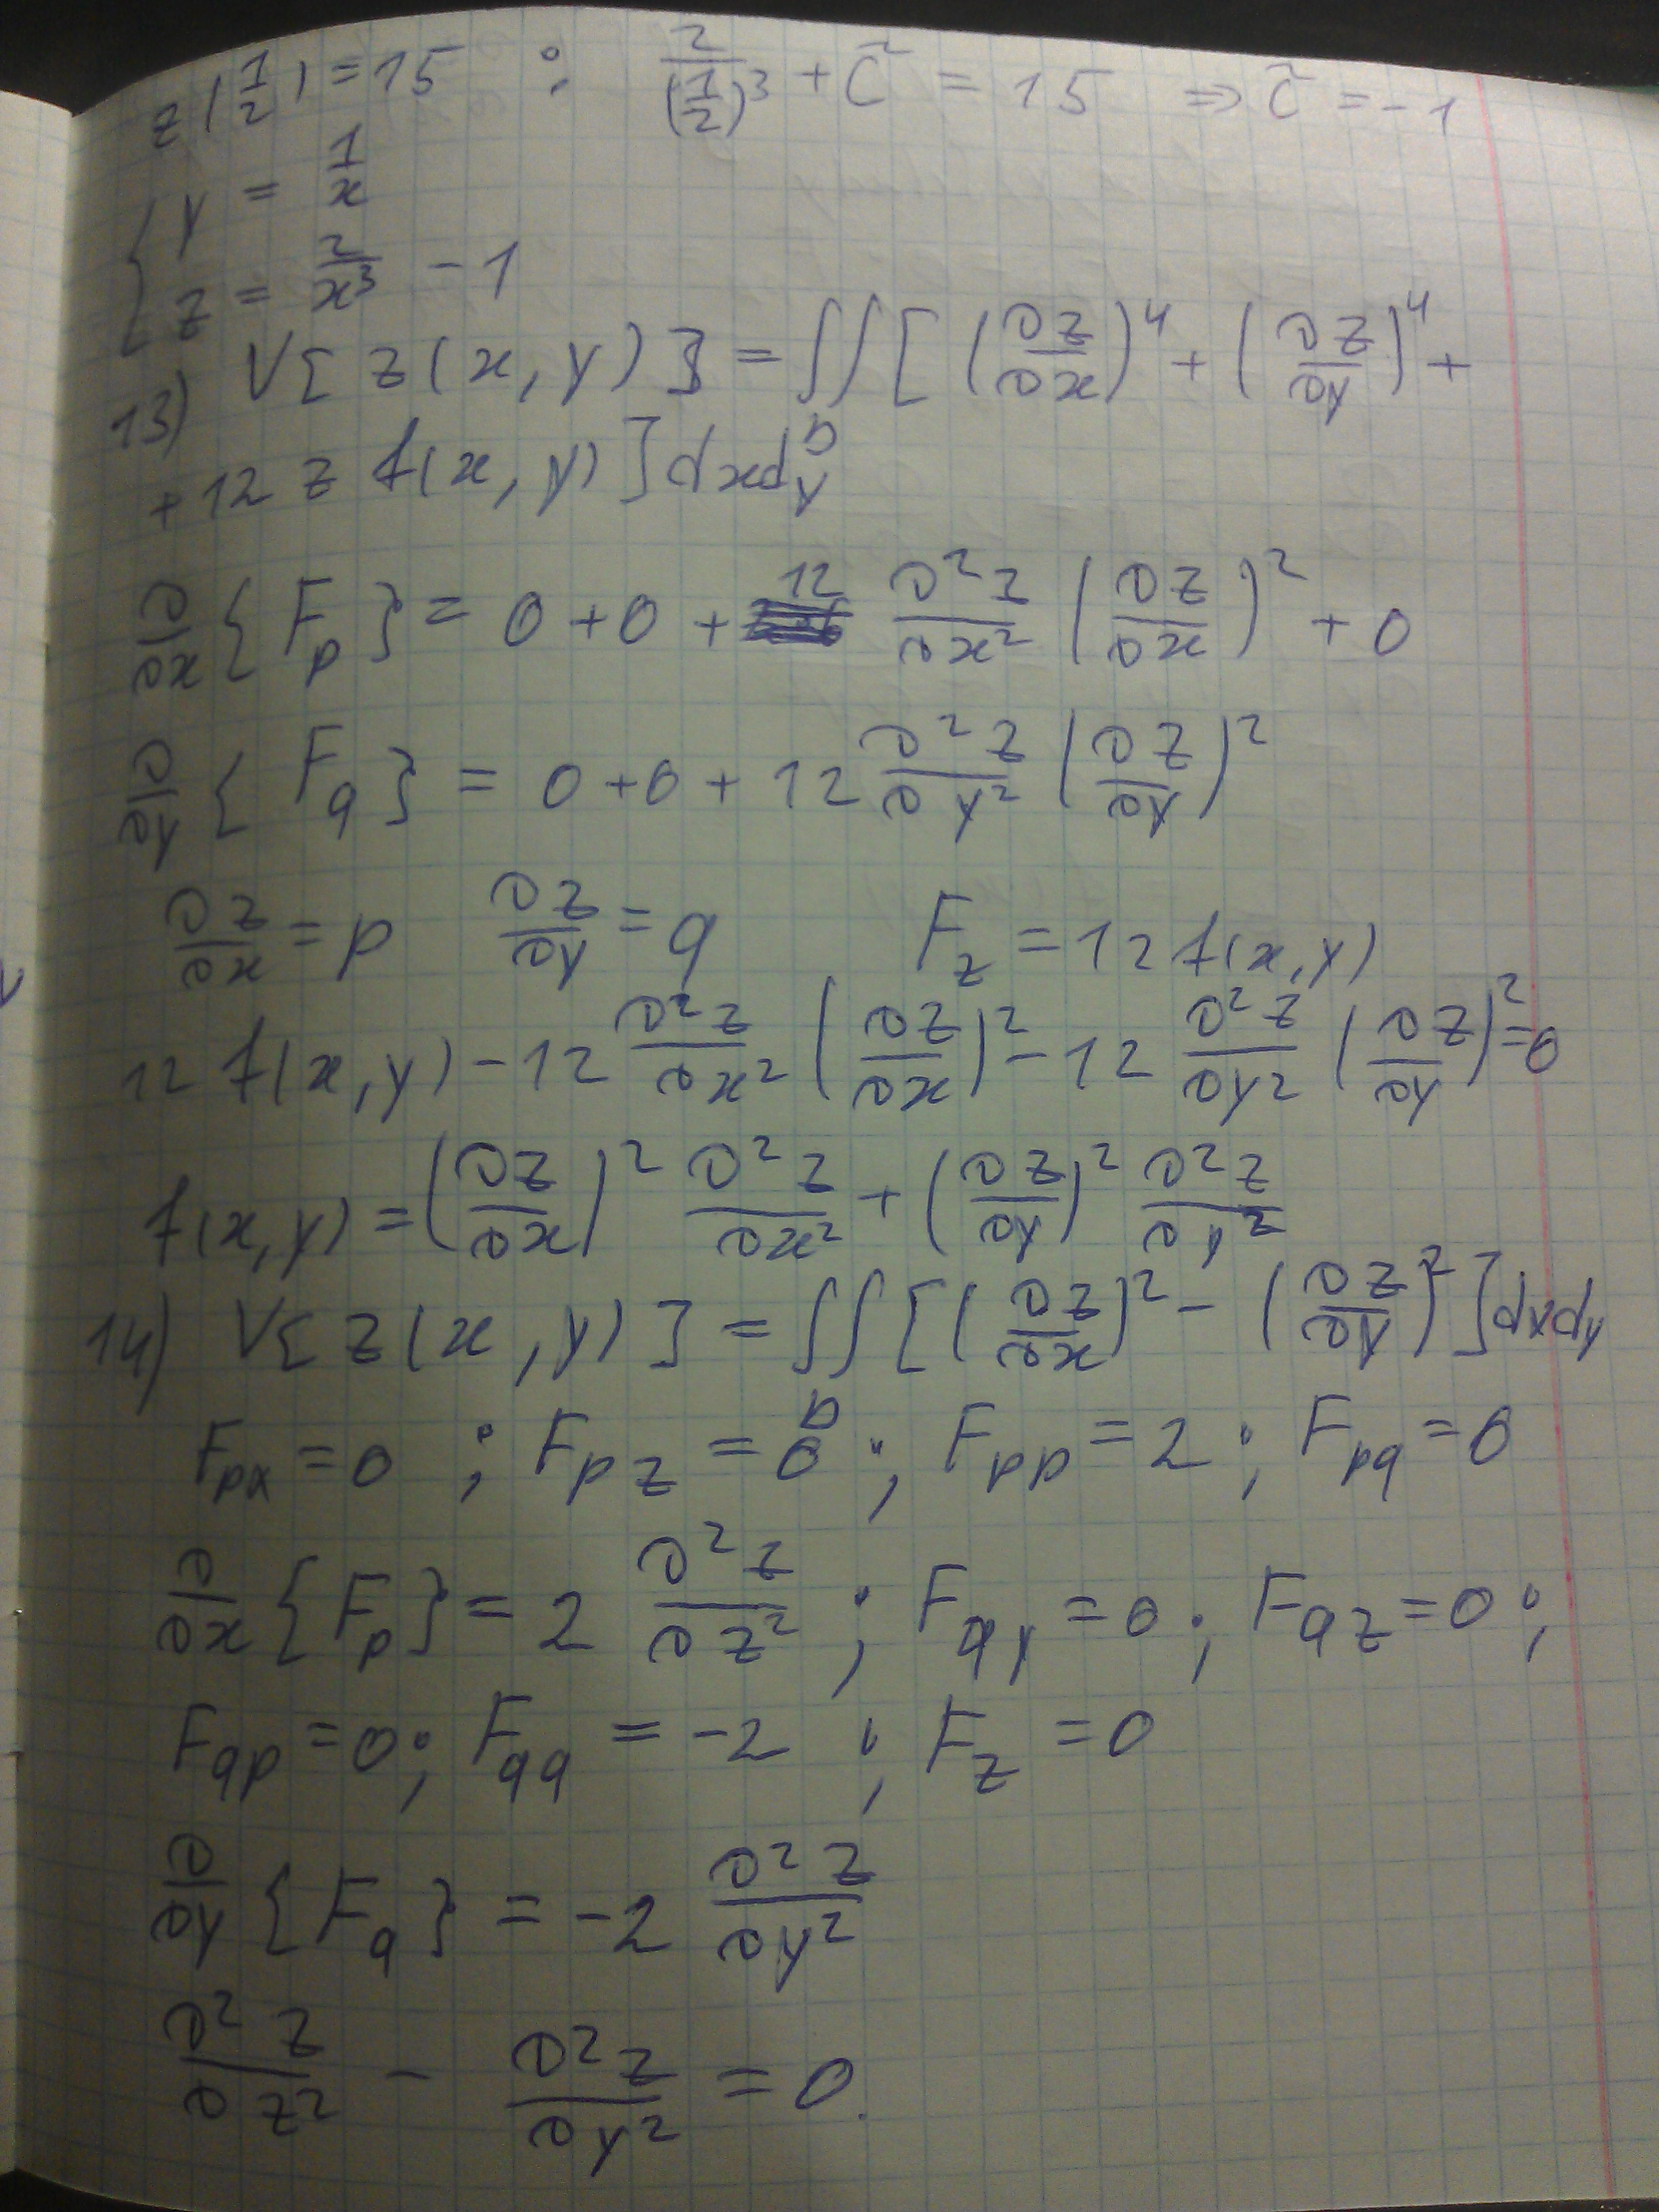 z(1/2) = 15 ; 2/(1/2)³ + C̃ = 15 ⇒ C̃ = -1
{ y = 1/x
z = 2/x³ - 1
13) V[z(x,y)] = ∬_D [(∂z/∂x)⁴ + (∂z/∂y)⁴ +
+ 12 z f(x,y)] dxdy
∂/∂x {F_p} = 0 + 0 + 12 ∂²z/∂x² (∂z/∂x)² + 0
∂/∂y {F_q} = 0 + 0 + 12 ∂²z/∂y² (∂z/∂y)²
∂z/∂x = p ∂z/∂y = q F_z = 12 f(x,y)
12 f(x,y) - 12 ∂²z/∂x² (∂z/∂x)² - 12 ∂²z/∂y² (∂z/∂y)² = 0
f(x,y) = (∂z/∂x)² ∂²z/∂x² + (∂z/∂y)² ∂²z/∂y²
14) V[z(x,y)] = ∬_D [(∂z/∂x)² - (∂z/∂y)²] dxdy
F_px = 0 ; F_pz = 0 ; F_pp = 2 ; F_pq = 0
∂/∂x {F_p} = 2 ∂²z/∂z² ; F_qy = 0 ; F_qz = 0 ;
F_qp = 0 ; F_qq = -2 ; F_z = 0
∂/∂y {F_q} = -2 ∂²z/∂y²
∂²z/∂z² - ∂²z/∂y² = 0.